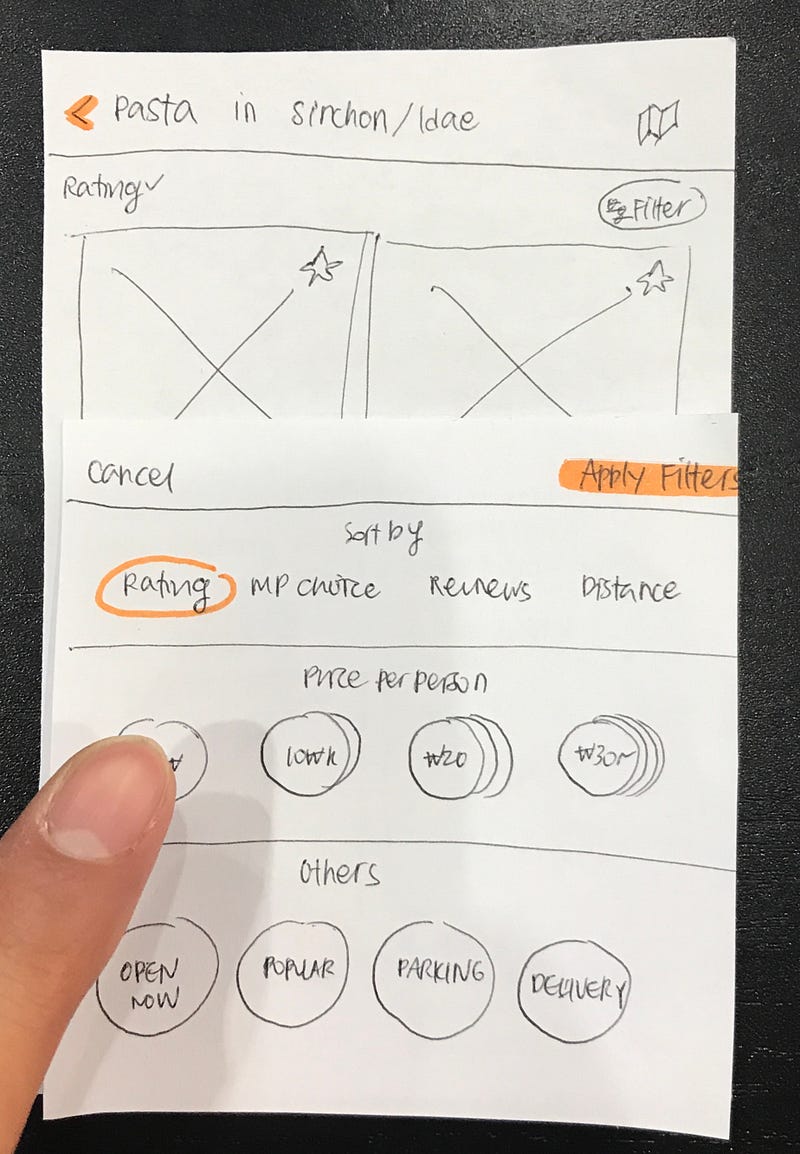 < Pasta in sinchon/Idae
Rating
Filter
Cancel
Apply Filters
Sort by
Rating MP choice Reviews Distance
Price per person
10₩k ₩20
Others
OPEN NOW POPULAR PARKING DELIVERY